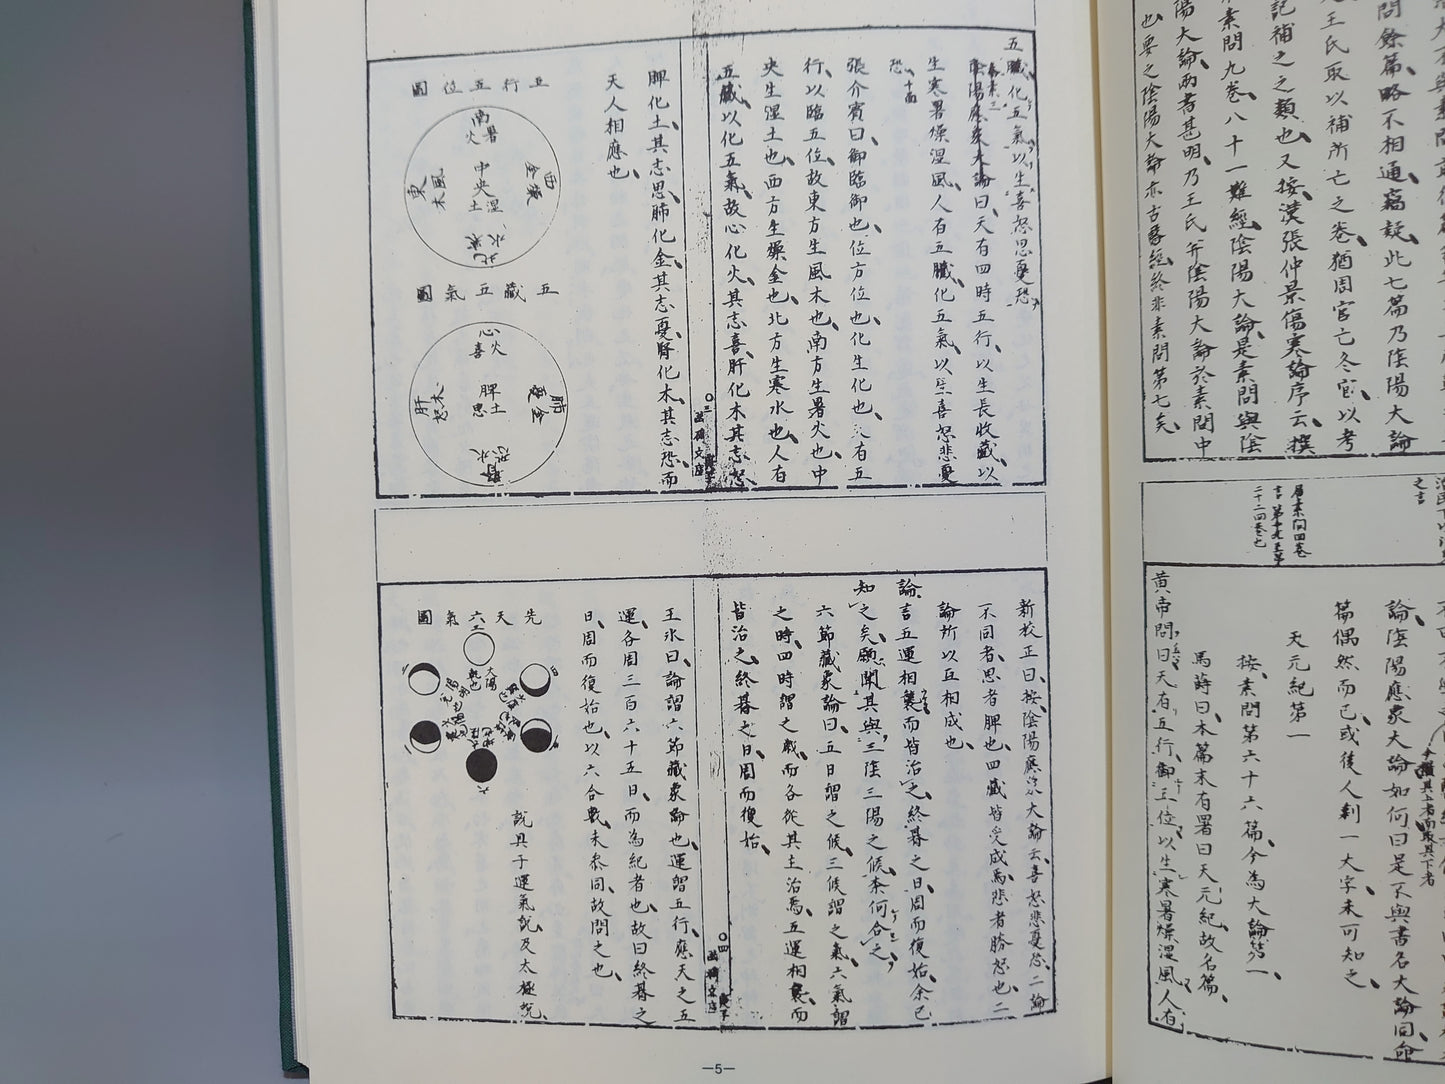 也要之陰陽大論亦古醫經終非素問第七矣
陽大論兩者甚明乃王氏并陰陽大論於素問中
素問九卷八十一難經陰陽大論是素問與陰
記補之之類也又按漢張仲景傷寒論序云撰
王氏取以補所亡之卷猶周官亡冬官以考
問餘篇略不相通竊疑此七篇乃陰陽大論
之言
居素問四卷
言第十九至第
二十二四卷也
論陰陽應象大論如何曰是不與書名大論同命
篇偶然而已或後人剩一大字未可知之
天元紀第一
按素問第六十六篇今為大論第一
馬蒔曰本篇末有署曰天元紀故名篇
黄帝問曰天有五行御五位以生寒暑燥湿風人有
五臓化五氣以生喜怒思憂恐
陰陽應象大論曰天有四時五行以生長收藏以
生寒暑燥湿風人有五臓化五氣以生喜怒悲憂
恐
張介賓曰御臨御也位方位也化生化也有五
行以臨五位故東方生風木也南方生暑火也中
央生湿土也西方生燥金也北方生寒水也人有
五藏以化五氣故心化火其志喜肝化木其志怒
脾化土其志思肺化金其志憂腎化木其志恐而
天人相應也
五行五位圖
南暑火
中央湿土
東風木
西燥金
北寒水
五藏五氣圖
心火喜
脾土思
肝木怒
肺金憂
腎水恐
新校正曰按陰陽應象大論云喜怒悲憂恐二論
不同者思者脾也四藏皆受成焉悲者勝怒也二
論所以互相成也
論言五運相襲而皆治之終朞之日周而復始余已
知之矣願聞其與三陰三陽之候奈何合之
六節藏象論曰五日謂之候三候謂之氣六氣謂
之時四時謂之歳而各從其主治焉五運相襲而
皆治之終朞之日周而復始
〇四
王氷曰論謂六節藏象論也運謂五行應天之五
運各周三百六十五日而為紀者也故曰終朞之
日周而復始也以六合數未参同故問之也
説具于運氣説及太極説
先天六氣圖
—5—